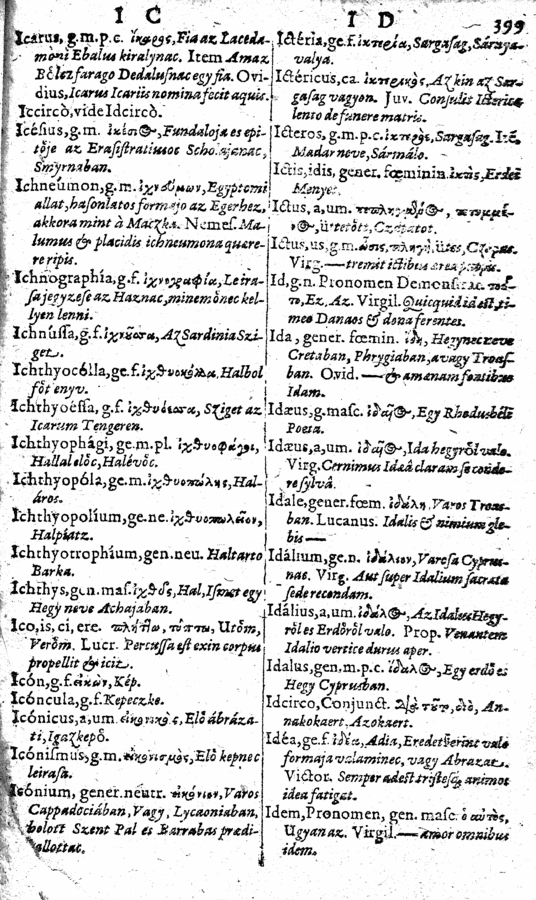 I C
I D
399
Icarus, g.m.p.c. ἴκαρος, Fia az Laceda-
mòni Ebalus kiralynac. Item Amaz
Bélez farago Dedalusnac egy fia. Ovi-
dius, Icarus Icariis nomina fecit aquis.
Iccircò, vide Idcircò.
Icésius, g.m. Fundaloja es epi-
tóje az Erasistratinoc Scholajanac,
Smyrnaban.
Ichneúmon, g.m. ἰχνεύμων, Egyptomi
allat, hasonlatos formajo az Egerhez,
akkora mint à Maczka. Nemes. Ma-
lumus & placidis ichneumona quære-
re ripis.
Ichnographía, g.f. ἰχνογραφία, Le ira-
sa jegyzese az Haznac, minemònec kel-
lyen lenni.
Ichnússa, g.f. ἰχνοῦσα, Az Sardinia Szi-
get.
Ichthyocólla, ge.f. ἰχθυοκόλλα, Halbol
fòt enyv.
Ichthyoéssa, g.f. ἰχθυόεσσα, Sziget az
Icarum Tengeren.
Ichthyophági, ge.m.pl. ἰχθυοφάγοι,
Hallal elòc, Halévòc.
Ichthyopóla, ge.m. ἰχθυοπώλης, Hal-
áros.
Ichthyopolíum, ge.ne. ἰχθυοπωλεῖον,
Halpiatz.
Ichthyotrophíum, gen.neu. Haltarto
Barka.
Ichthys, gen.mas. ἰχθὺς, Hal, Ismet egy
Hegy neve Achajaban.
Ico, is, ci, ere. πλήττω, τύπτω, Utòm,
Veròm. Lucr. Percussa est exin corpus
propellit & icit.
Icón, g.f. εἰκὼν, Kép.
Icóncula, g.f. Kepeczke.
Icónicus, a, um. εἰκονικὸς, Elò ábráza-
ti, Igazkepò.
Iconísmus, g.m. εἰκονισμὸς, Elò kepnec
leirasa.
Icónium, gener. neutr. Varos
Cappadociában, Vagy, Lycaoniaban,
holott Szent Pal es Barrabas prædi-
allottac.
Ictéria, ge.f. ἰκτερία, Sargasag, Sáraya-
valya.
Ictéricus, ca. ἰκτερικὸς, Az kin az Sar-
gasag vagyon. Juv. Consulis Icterica
lento de funere matris.
Icteros, g.m.p.c. ἴκτερος, Sargasag. Itē.
Madar neve, Sármálo.
Ictis, idis, gener. fœminin. ἴκτις, Erdei
Menyet.
Ictus, a, um.
ütetòt, Czapatot.
Ictus, us, g.m. πληγὴ, ütes, Czapas.
Virg. —— tremit ictibus
Id, g.n. Pronomen
Ez, Az. Virgil. Quicquid id est, ti-
meo Danaos & dona ferentes.
Ida, gener. fœmin. ἴδη, Hegynec neve
Cretaban, Phrygiaban, avagy Troas-
ban. Ovid. —— & amœnam fontibus
Idam.
Idæus, g.masc. Egy Rhodusbéli
Poeta.
Idæus, a, um. Ida hegyròl valo.
Virg. Cernimus Idæâ claram se conde-
re sylvâ.
Idale, gener. fœm. ἰδάλη, Varos Troas-
ban. Lucanus. Idalis & nimium gle-
bis ——
Idálium, ge.n. ἰδάλιον, Varosa Cyprus-
nac. Virg. Aut super Idalium sacrata
sede recondam.
Idálius, a, um. Az Idalus Hegy-
ròl es Erdòròl valo. Prop. Venantem
Idalio vertice durus aper.
Idalus, gen.m.p.c. Egy erdò es
Hegy Cyprusban.
Idcirco, Conjunct. An-
nakokaert, Azokaert.
Idéa, ge.f. ἰδέα, Adia, Eredet ßerint valo
formaja valaminec, vagy Abrazat.
Victor. Semper adest tristesq; animos
idea fatigat.
Idem, Pronomen, gen. masc. ὁ αὐτὸς,
Ugyan az. Virgil. —— amor omnibus
idem.